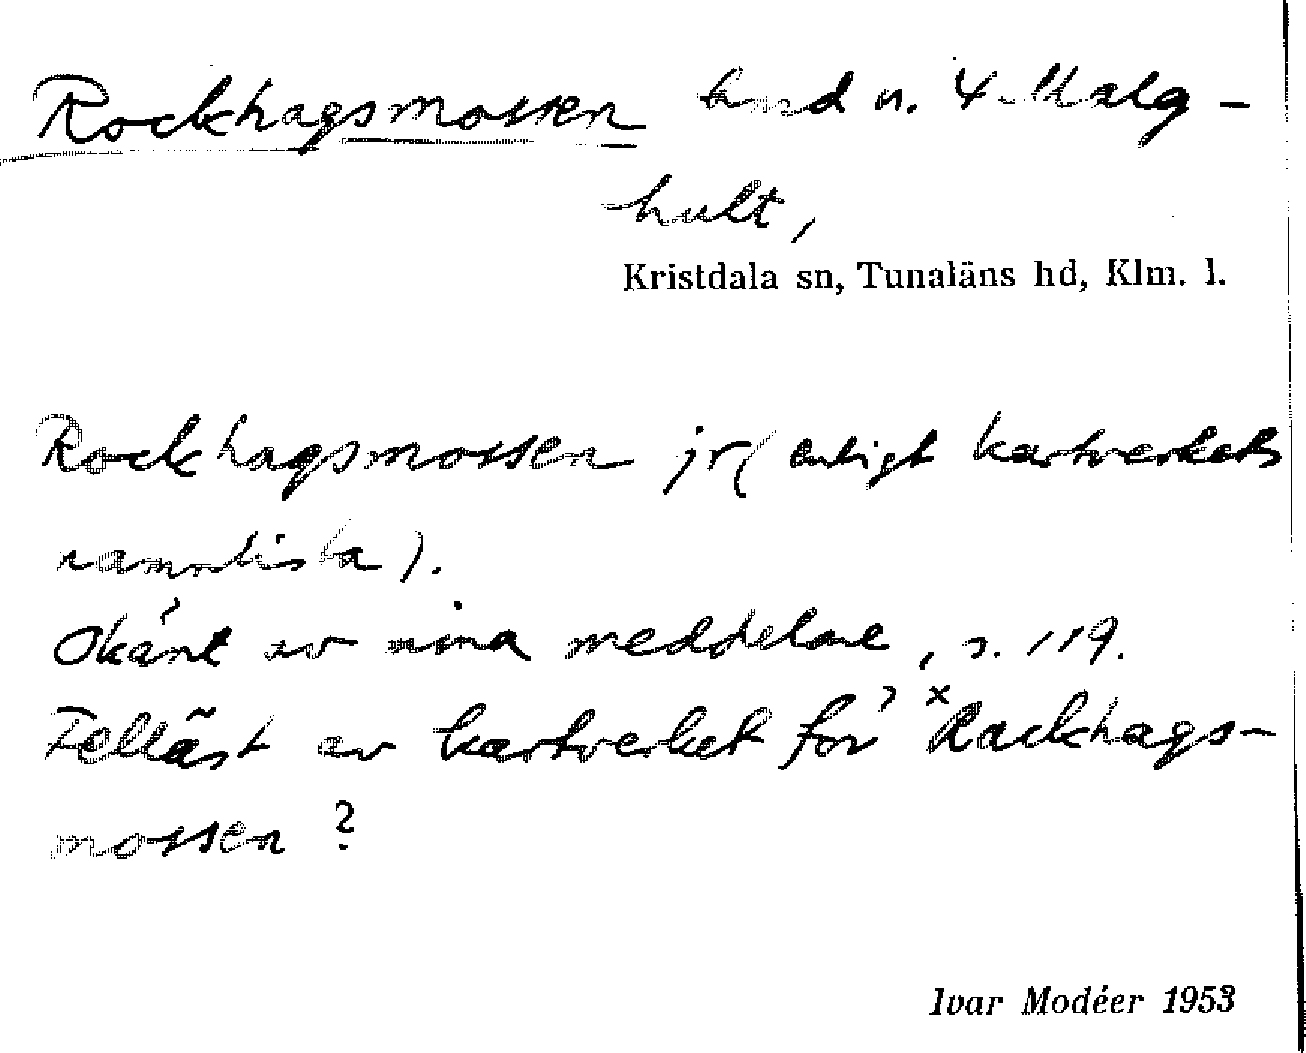 Rockhagsmossen und n. 4 Malg-
hult,
Kristdala sn, Tunaläns hd, Klm. l.
Rockhagsmossen jr (enligt kartverkets
namnlista).
Okänt av mina meddelare, s. 119.
Felläst av kartverket för ˣRackhags-
mossen?
Ivar Modéer 1953